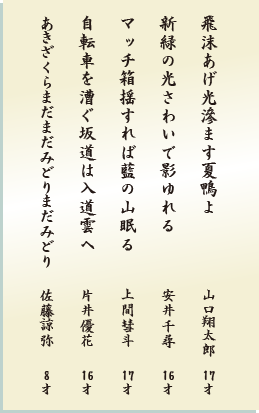 飛沫あげ光滲ます夏鴨よ　山口翔太郎　17才
新緑の光さわいで影ゆれる　安井千尋　16才
マッチ箱揺すれば藍の山眠る　上間彗斗　17才
自転車を漕ぐ坂道は入道雲へ　片井優花　16才
あきざくらまだまだみどりまだみどり　佐藤諒弥　8才